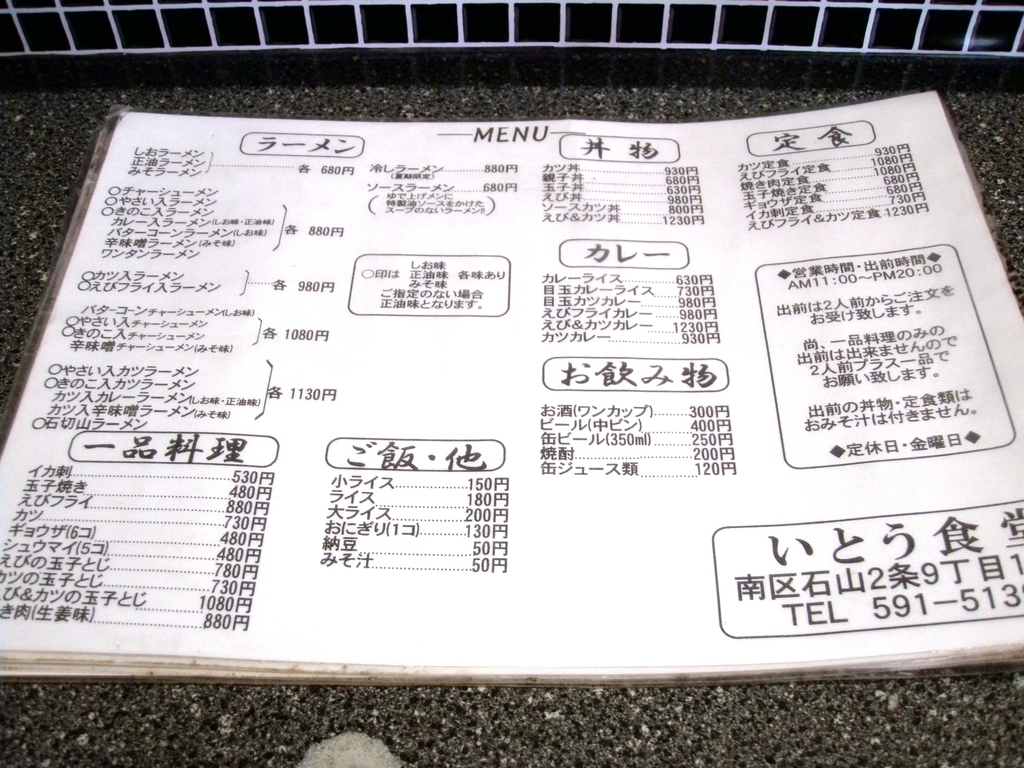 MENU
ラーメン
しおラーメン
正油ラーメン
みそラーメン
各 680円
○チャーシューメン
○やさい入ラーメン
○きのこ入ラーメン
カレー入ラーメン(しお味・正油味)
バターコーンラーメン(しお味)
辛味噌ラーメン(みそ味)
ワンタンラーメン
各 880円
○カツ入ラーメン
○えびフライ入ラーメン
各 980円
バターコーンチャーシューメン(しお味)
○やさい入チャーシューメン
○きのこ入チャーシューメン
辛味噌チャーシューメン(みそ味)
各 1080円
○やさい入カツラーメン
○きのこ入カツラーメン
カツ入カレーラーメン(しお味・正油味)
カツ入辛味噌ラーメン(みそ味)
○石切山ラーメン
各 1130円
冷しラーメン 880円
(夏期限定)
ソースラーメン 680円
(ゆで上げメンに
特製油ソースをかけた
スープのないラーメン!!)
しお味
○印は 正油味 各味あり
みそ味
ご指定のない場合
正油味となります。
一品料理
イカ刺 530円
玉子焼き 480円
えびフライ 880円
カツ 730円
ギョウザ(6コ) 480円
シュウマイ(5コ) 480円
えびの玉子とじ 780円
カツの玉子とじ 730円
び&カツの玉子とじ 1080円
き肉(生姜味) 880円
ご飯・他
小ライス 150円
ライス 180円
大ライス 200円
おにぎり(1コ) 130円
納豆 50円
みそ汁 50円
丼物
カツ丼 930円
親子丼 680円
玉子丼 630円
えび丼 980円
ソースカツ丼 800円
えび&カツ丼 1230円
カレー
カレーライス 630円
目玉カレーライス 730円
目玉カツカレー 980円
えびフライカレー 980円
えび&カツカレー 1230円
カツカレー 930円
お飲み物
お酒(ワンカップ) 300円
ビール(中ビン) 400円
缶ビール(350ml) 250円
焼酎 200円
缶ジュース類 120円
定食
カツ定食 930円
えびフライ定食 1080円
焼き肉定食 1080円
玉子焼き定食 680円
ギョウザ定食 680円
イカ刺定食 730円
えびフライ&カツ定食 1230円
◆営業時間・出前時間◆
AM11:00～PM20:00
出前は2人前からご注文を
お受け致します。
尚、一品料理のみの
出前は出来ませんので
2人前プラス一品で
お願い致します。
出前の丼物・定食類は
おみそ汁は付きません。
◆定休日・金曜日◆
いとう食堂
南区石山2条9丁目1
TEL 591-513